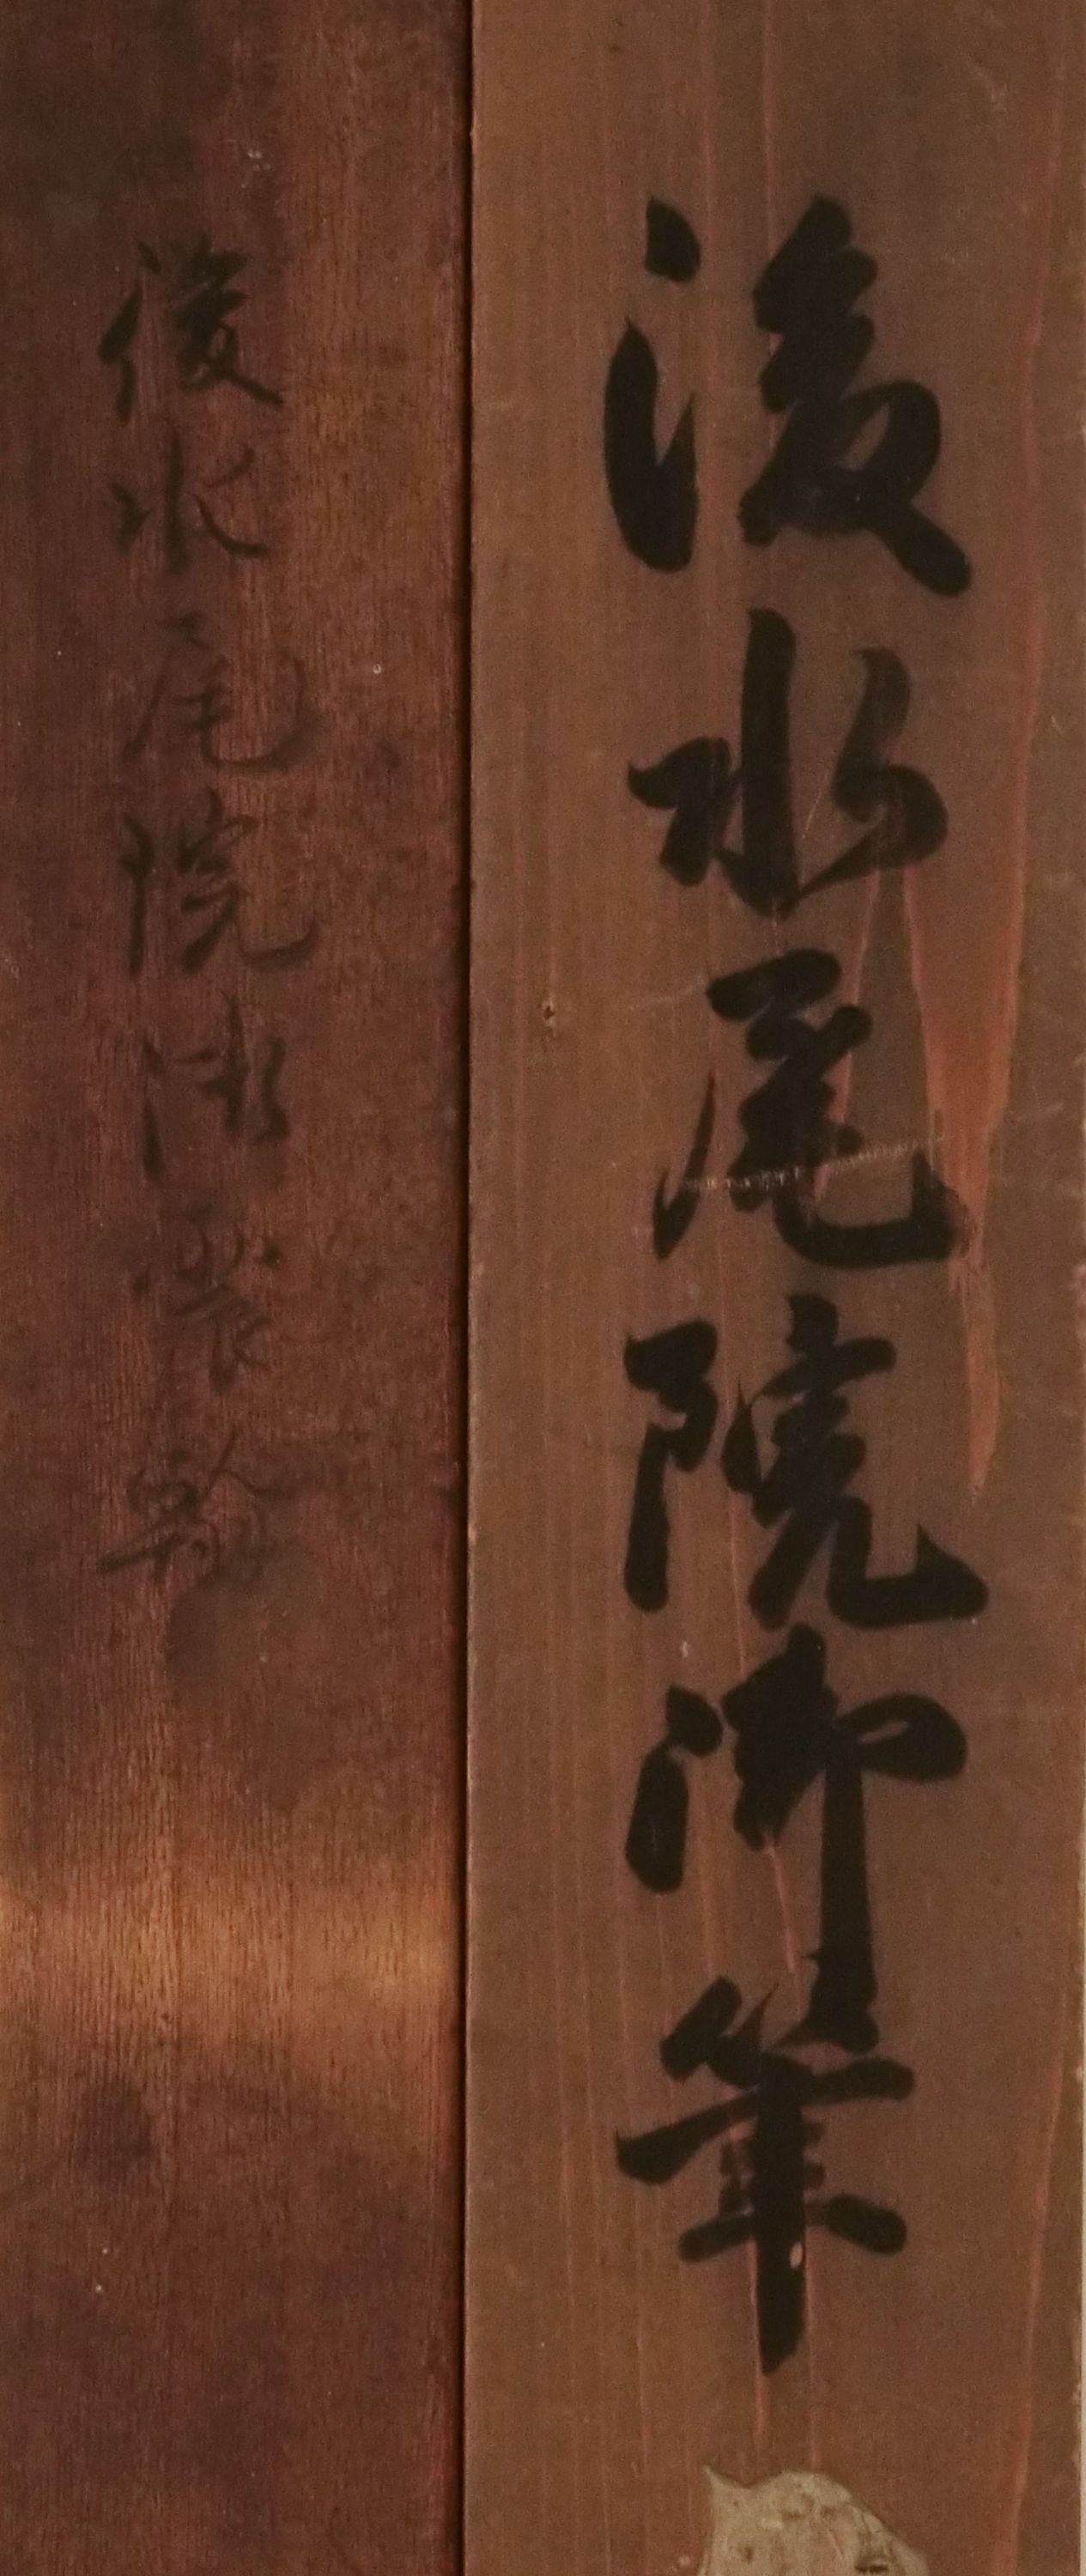 後水尾院御筆
後水尾院御宸翰